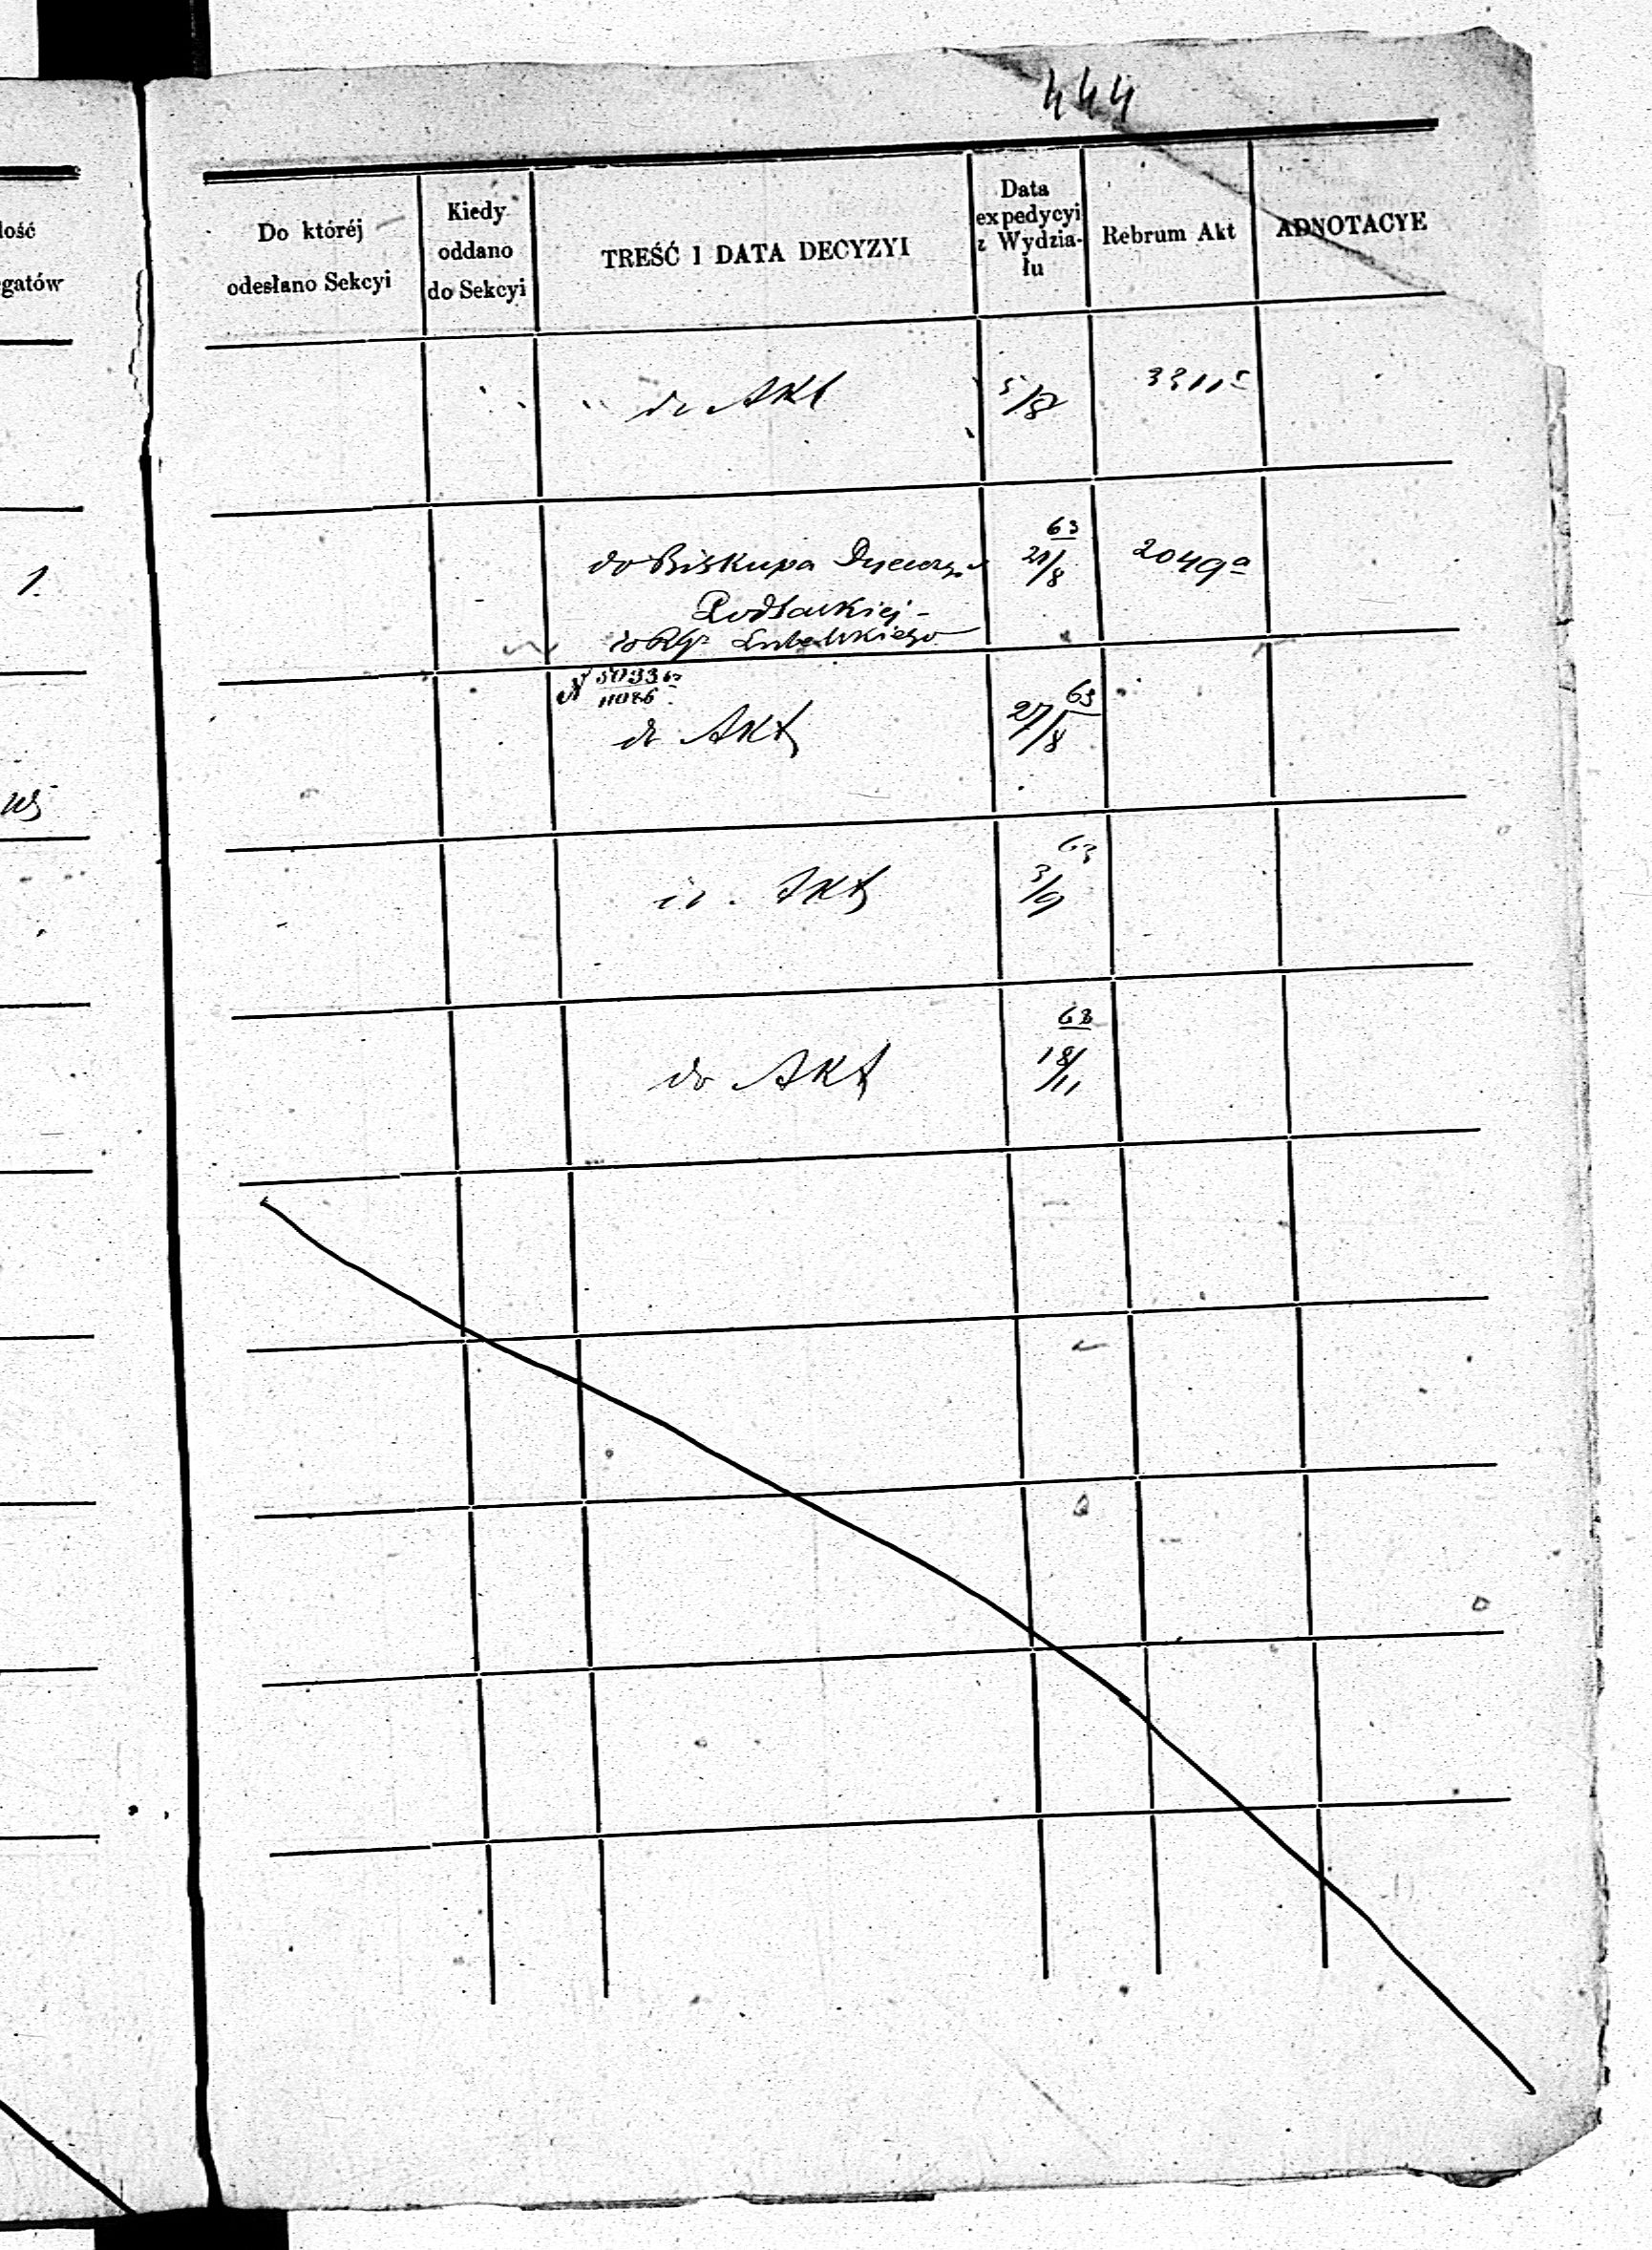 444
lość
gatów
Do któréj
odesłano Sekcyi
Kiedy
oddano
do Sekcyi
TREŚĆ I DATA DECYZYI
Data
expedycyi
z Wydzia-
łu
Rebrum Akt
ADNOTACYE
do Akt
1.
do Biskupa
Podlaskiej -
Lubelskiego
63
21/8
2049a
do Akt
63
27/8
do Akt
63
3/9
do Akt
63
18/11